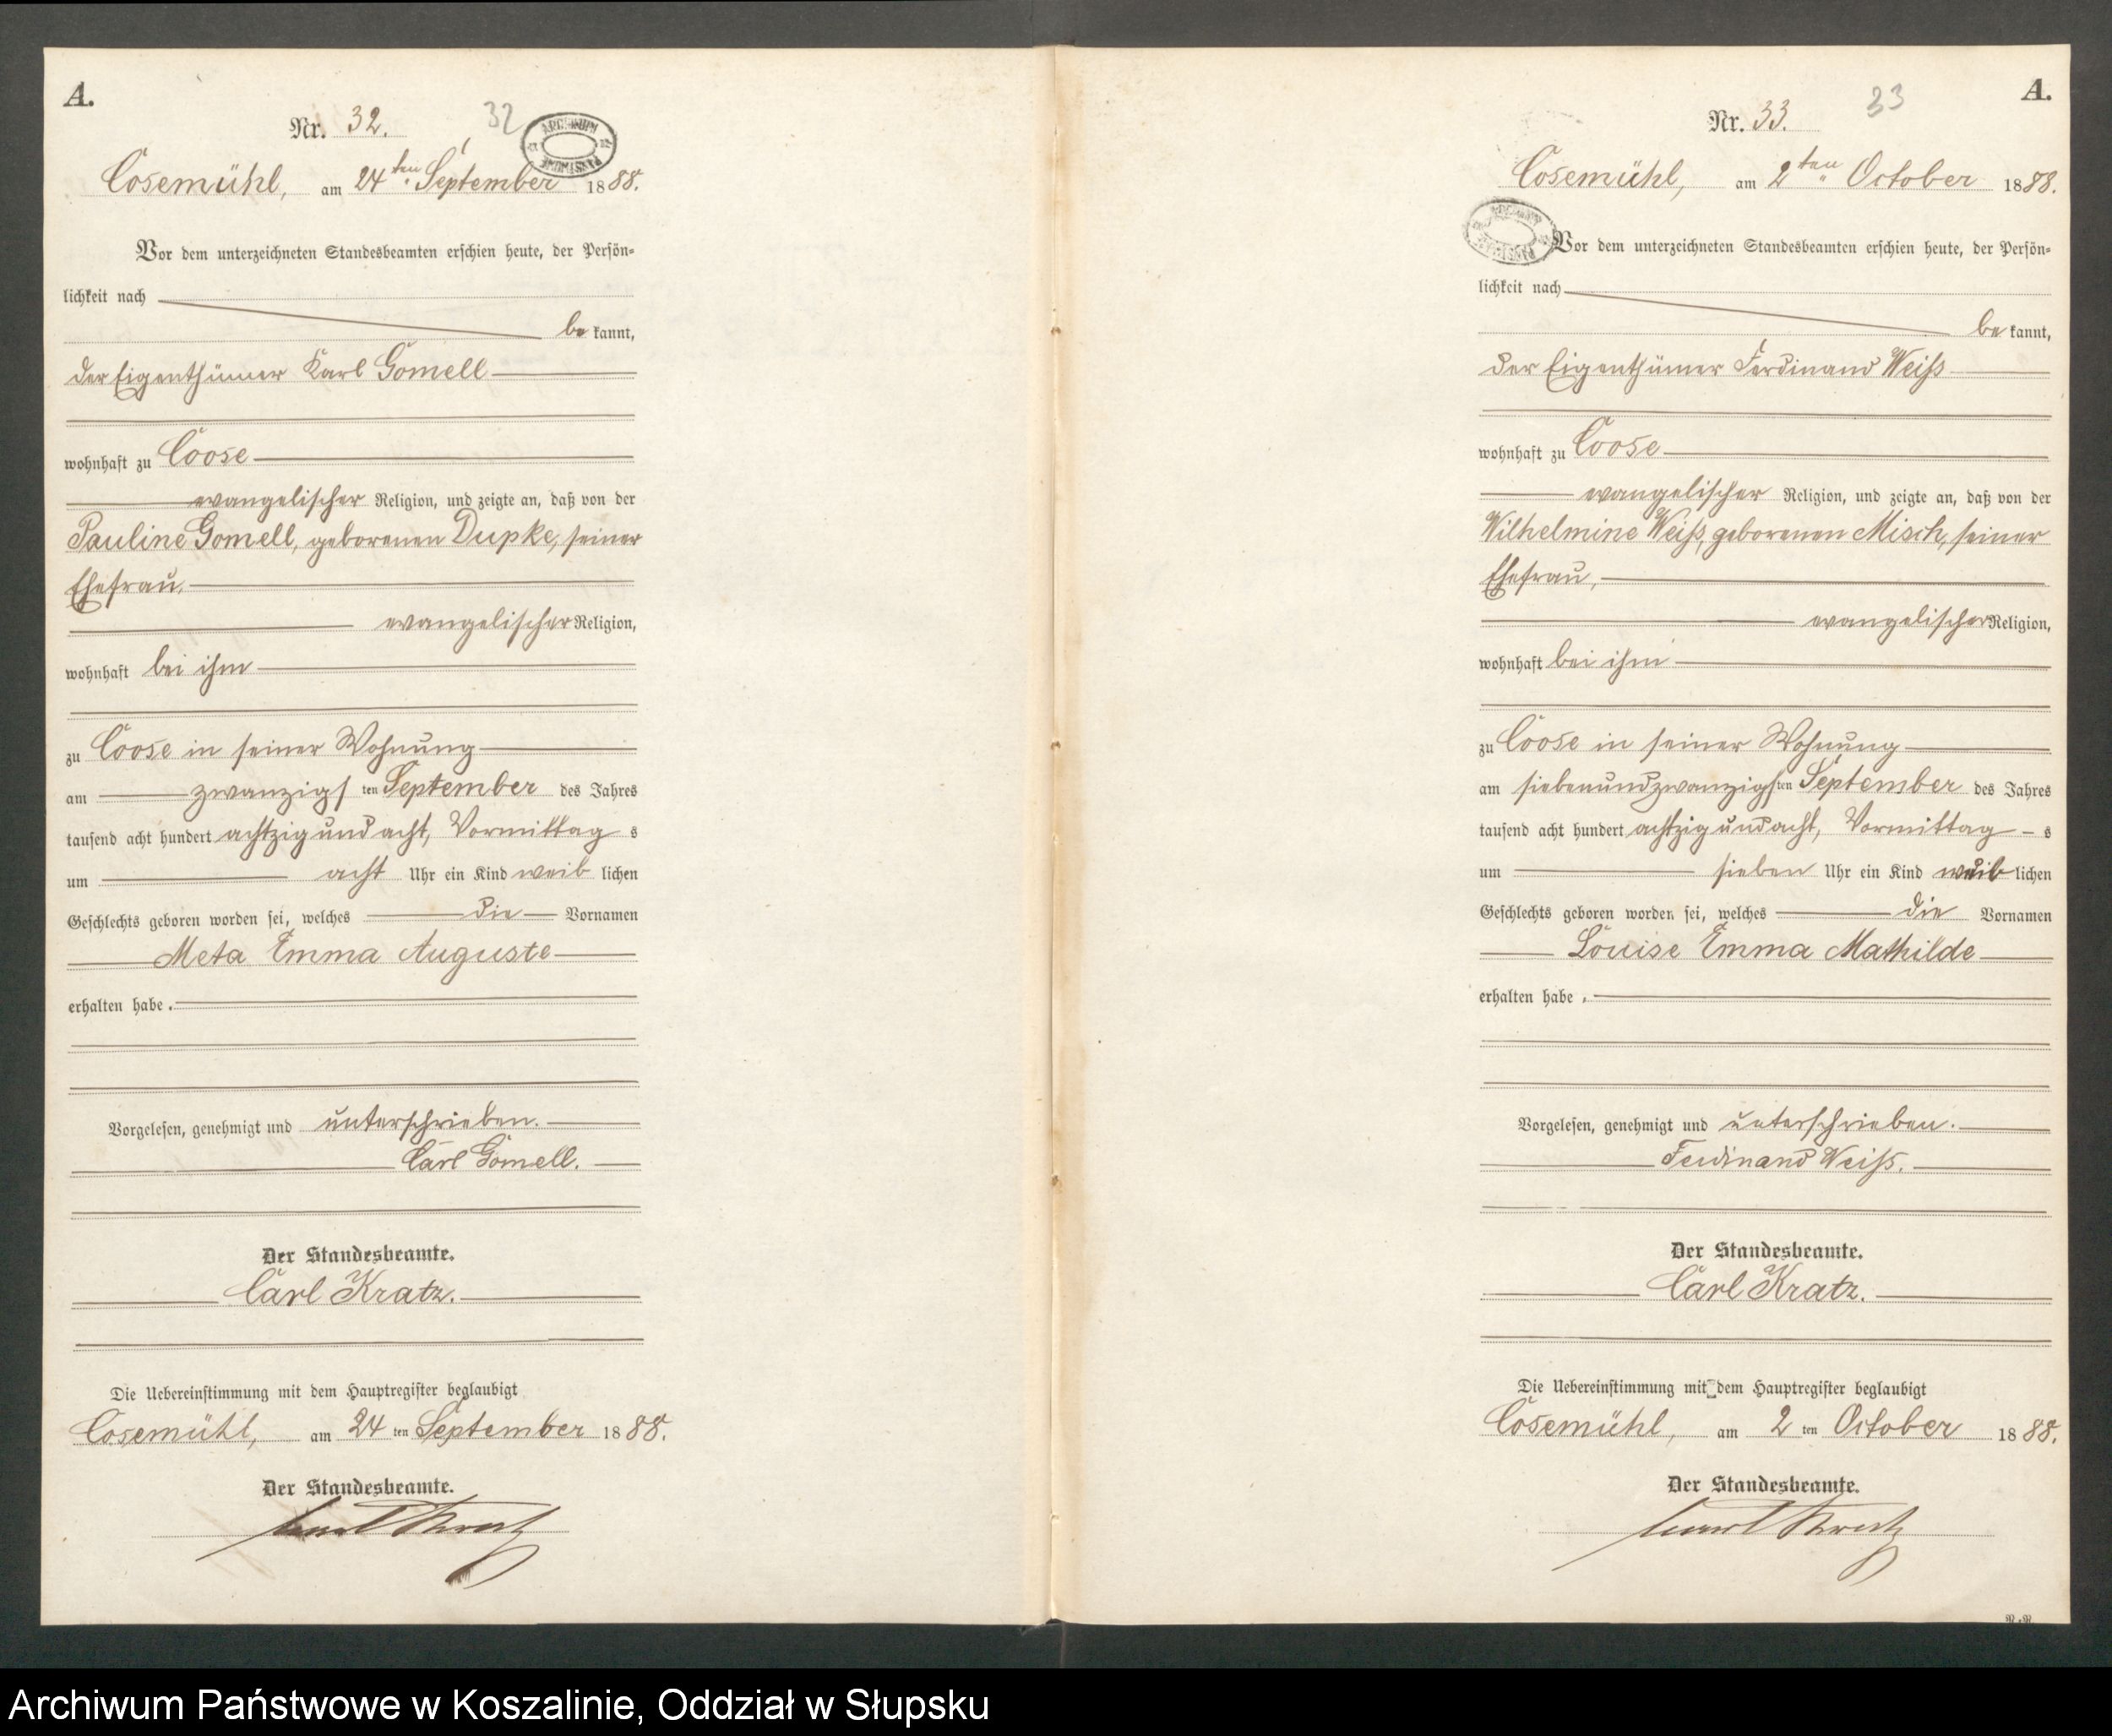 A.
Nr. 32.
32
ARCHIWUM PAŃSTWOWE
Cosemühl, am 24ten September 1888.
Vor dem unterzeichneten Standesbeamten erschien heute, der Persön-
lichkeit nach
be kannt,
der Eigenthümer Karl Gomell
wohnhaft zu Coose
evangelischer Religion, und zeigte an, daß von der
Pauline Gomell, geborenen Dupke, seiner
Ehefrau,
evangelischer Religion,
wohnhaft bei ihm
zu Coose in seiner Wohnung
am zwanzigs ten September des Jahres
tausend acht hundert achtzig und acht, Vormittag s
um acht Uhr ein Kind weib lichen
Geschlechts geboren worden sei, welches die Vornamen
Meta Emma Auguste
erhalten habe.
Vorgelesen, genehmigt und unterschrieben.
Carl Gomell.
Der Standesbeamte.
Carl Kratz.
Die Uebereinstimmung mit dem Hauptregister beglaubigt
Cosemühl, am 24 ten September 1888.
Der Standesbeamte.
Carl Kratz
A.
Nr. 33.
33
Cosemühl, am 2ten October 1888.
ARCHIWUM PAŃSTWOWE
Vor dem unterzeichneten Standesbeamten erschien heute, der Persön-
lichkeit nach
be kannt,
der Eigenthümer Ferdinand Weiß
wohnhaft zu Coose
evangelischer Religion, und zeigte an, daß von der
Wilhelmine Weiß, geborenen Misch, seiner
Ehefrau,
evangelischer Religion,
wohnhaft bei ihm
zu Coose in seiner Wohnung
am siebenundzwanzigs ten September des Jahres
tausend acht hundert achtzig und acht, Vormittag s
um sieben Uhr ein Kind weib lichen
Geschlechts geboren worden sei, welches die Vornamen
Louise Emma Mathilde
erhalten habe.
Vorgelesen, genehmigt und unterschrieben.
Ferdinand Weiß.
Der Standesbeamte.
Carl Kratz.
Die Uebereinstimmung mit dem Hauptregister beglaubigt
Cosemühl, am 2 ten October 1888.
Der Standesbeamte.
Carl Kratz
Archiwum Państwowe w Koszalinie, Oddział w Słupsku